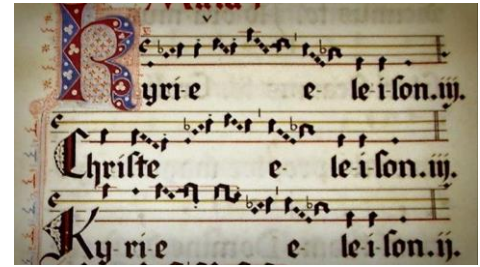 Kyri-e e- le-i-son.iij.
Christe e- le-i-son.iij.
Ky-ri-e e- le-i-son.ij.